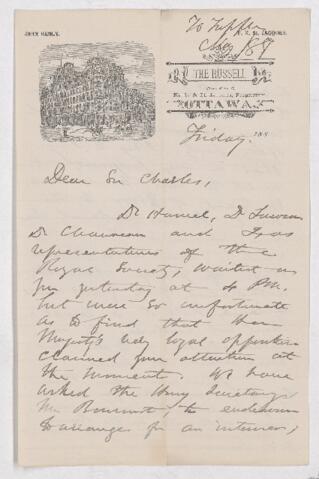 To Tupper
THE RUSSELL
OTTAWA
Friday 188
Dear Sir Charles,
Dr Hamel, Dr
Dr Chauveau and I as
representatives of the
Royal Society, waited on
you yesterday at 4 P.M.
but were so unfortunate
as to find that Her
Majesty's loyal opposition
claimed your attention at
the moment. We have
asked the Hony Secretary
Mr Bourinot, to endeavour
to arrange for an interview,